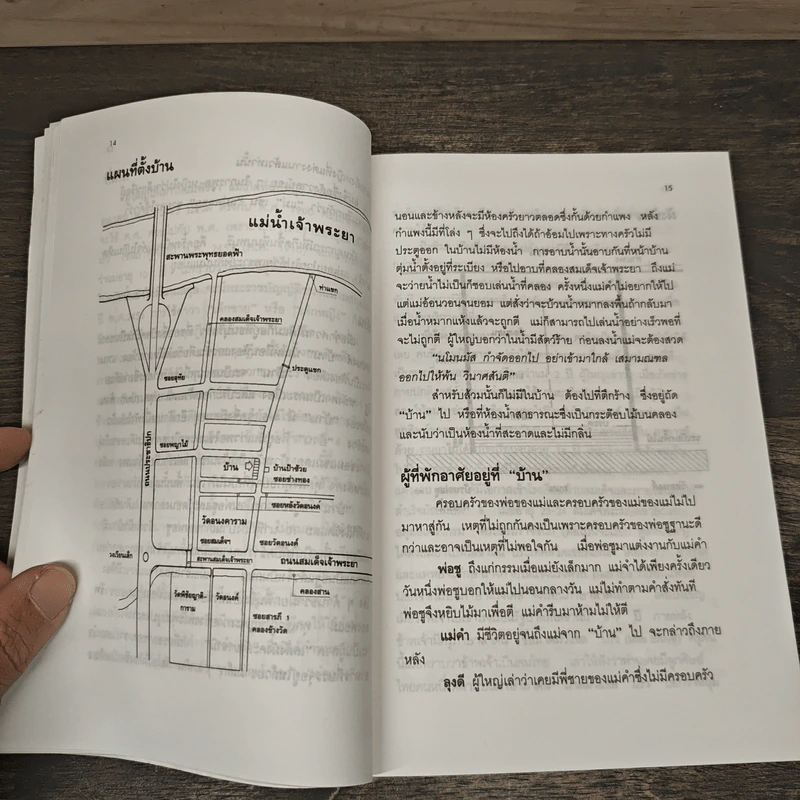 14
แผนที่ตั้งบ้าน
แม่น้ำเจ้าพระยา
สะพานพระพุทธยอดฟ้า
ท่าแขก
คลองสมเด็จเจ้าพระยา
ประตูแขก
ซอยอุทัย
ซอยพญาไม้
ถนนประชาธิปก
บ้าน
บ้านป้าช้วย
ซอยช่างทอง
ซอยหลังวัดอนงค์
วัดอนงคาราม
ซอยสมเด็จฯ
ซอยวัดอนงค์
วงเวียนเล็ก
สะพานสมเด็จเจ้าพระยา
ถนนสมเด็จเจ้าพระยา
คลองสาน
วัดพิชัยญาติ-
การาม
วัดอนงค์
ซอยสารภี 1
คลองข้างวัด
15
นอนและข้างหลังจะมีห้องครัวยาวตลอดซึ่งกั้นด้วยกำแพง หลัง
กำแพงนี้มีที่โล่ง ๆ ซึ่งจะไปถึงได้ถ้าอ้อมไปเพราะทางครัวไม่มี
ประตูออก ในบ้านไม่มีห้องน้ำ การอาบน้ำนั้นอาบกันที่หน้าบ้าน
ตุ่มน้ำตั้งอยู่ที่ระเบียง หรือไปอาบที่คลองสมเด็จเจ้าพระยา ถึงแม่
จะว่ายน้ำไม่เป็นก็ชอบเล่นน้ำที่คลอง ครั้งหนึ่งแม่คำไม่อยากให้ไป
แต่แม่อ้อนวอนจนยอม แต่สั่งว่าจะบ้วนน้ำหมากลงพื้นถ้ากลับมา
เมื่อน้ำหมากแห้งแล้วจะถูกตี แม่ก็สามารถไปเล่นน้ำอย่างเร็วพอที่
จะไม่ถูกตี ผู้ใหญ่บอกว่าในน้ำมีสัตว์ร้าย ก่อนลงน้ำแม่จะต้องสวด
“นโมนมัส กำจัดออกไป อย่าเข้ามาใกล้ เสมามณฑล
ออกไปให้พ้น วินาศสันติ”
สำหรับส้วมนั้นก็ไม่มีในบ้าน ต้องไปที่ตึกร้าง ซึ่งอยู่ถัด
“บ้าน” ไป หรือที่ห้องน้ำสาธารณะซึ่งเป็นกระต๊อบไม้บนคลอง
และนับว่าเป็นห้องน้ำที่สะอาดและไม่มีกลิ่น
ผู้ที่พักอาศัยอยู่ที่ “บ้าน”
ครอบครัวของพ่อของแม่และครอบครัวของแม่ของแม่ไม่ไป
มาหาสู่กัน เหตุที่ไม่ถูกกันคงเป็นเพราะครอบครัวของพ่อชูฐานะดี
กว่าและอาจเป็นเหตุที่ไม่พอใจกัน เมื่อพ่อชูมาแต่งงานกับแม่คำ
พ่อชู ถึงแก่กรรมเมื่อแม่ยังเล็กมาก แม่จำได้เพียงครั้งเดียว
วันหนึ่งพ่อชูบอกให้แม่ไปนอนกลางวัน แม่ไม่ทำตามคำสั่งทันที
พ่อชูจึงหยิบไม้มาเพื่อตี แม่คำรีบมาห้ามไม่ให้ตี
แม่คำ มีชีวิตอยู่จนถึงแม่จาก “บ้าน” ไป จะกล่าวถึงภาย
หลัง
ลุงดี ผู้ใหญ่เล่าว่าเคยมีพี่ชายของแม่คำซึ่งไม่มีครอบครัว